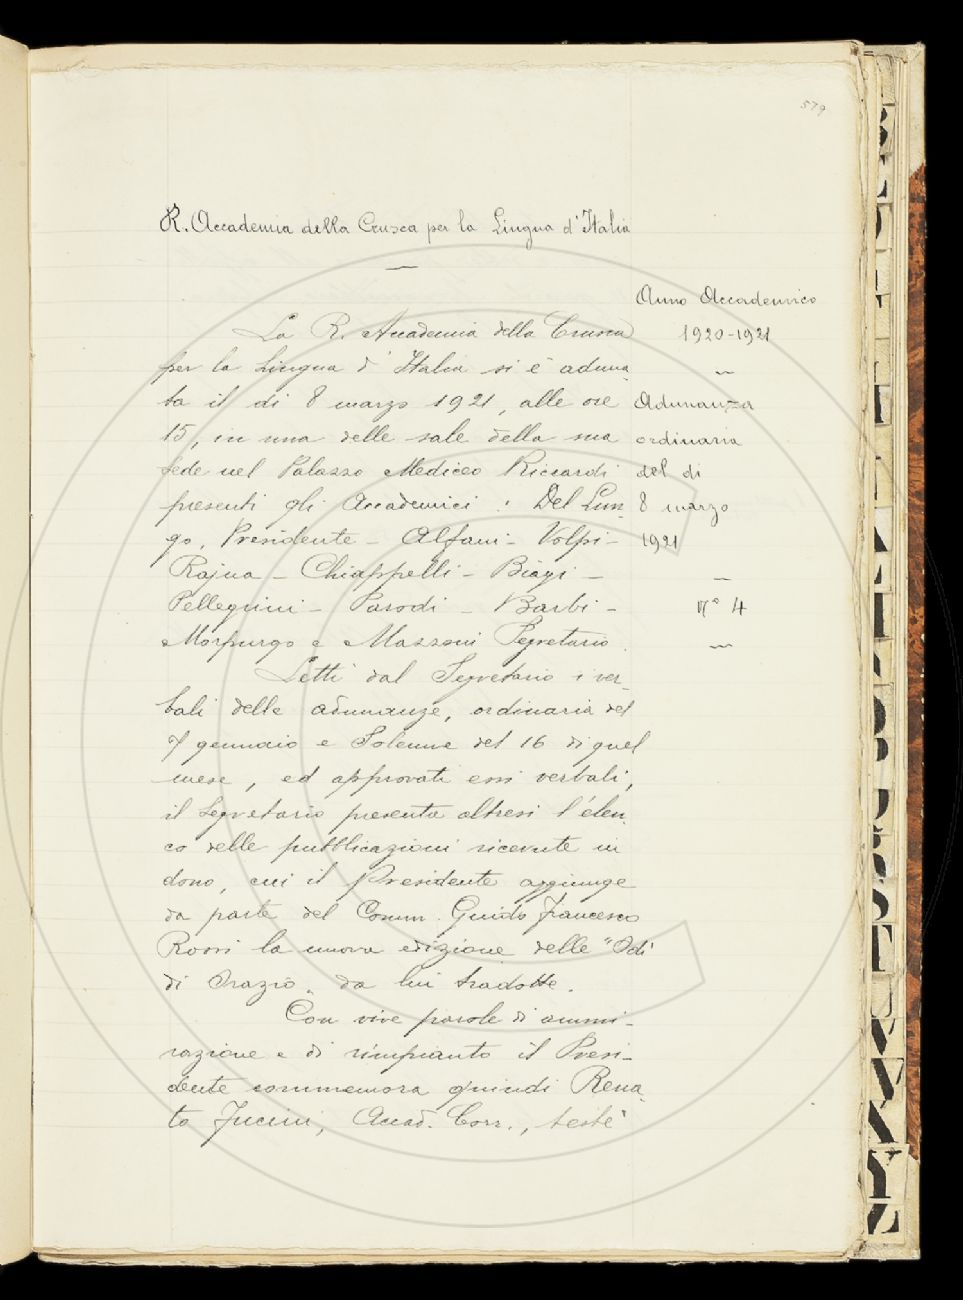 579
R. Accademia della Crusca per la Lingua d'Italia
Anno Accademico
1920-1921
Adunanza
ordinaria
del dì
8 marzo
1921
N° 4
La R. Accademia della Crusca
per la Lingua d'Italia si è aduna
ta il dì 8 marzo 1921, alle ore
15, in una delle sale della sua
sede nel Palazzo Mediceo Riccardi
presenti gli Accademici: Del Lun-
go, Presidente - Alfani - Volpi -
Rajna - Chiappelli - Biagi -
Pellegrini - Parodi - Barbi -
Morpurgo e Mazzoni Segretario.
Letti dal Segretario i ver-
bali delle adunanze, ordinaria del
7 gennaio e Solenne del 16 di quel
mese, ed approvati essi verbali,
il Segretario presenta altresì l'elen
co delle pubblicazioni ricevute in
dono, cui il Presidente aggiunge
da parte del Comm. Guido Francesco
Rossi la nuova edizione delle "Odi
di Orazio" da lui tradotte.
Con vive parole di ammi-
razione e di rimpianto il Presi-
dente commemora quindi Rena
to Fucini, Accad. Corr., testè
B
E
D
A
I
P
Q
R
S
T
U
V
X
Y
Z